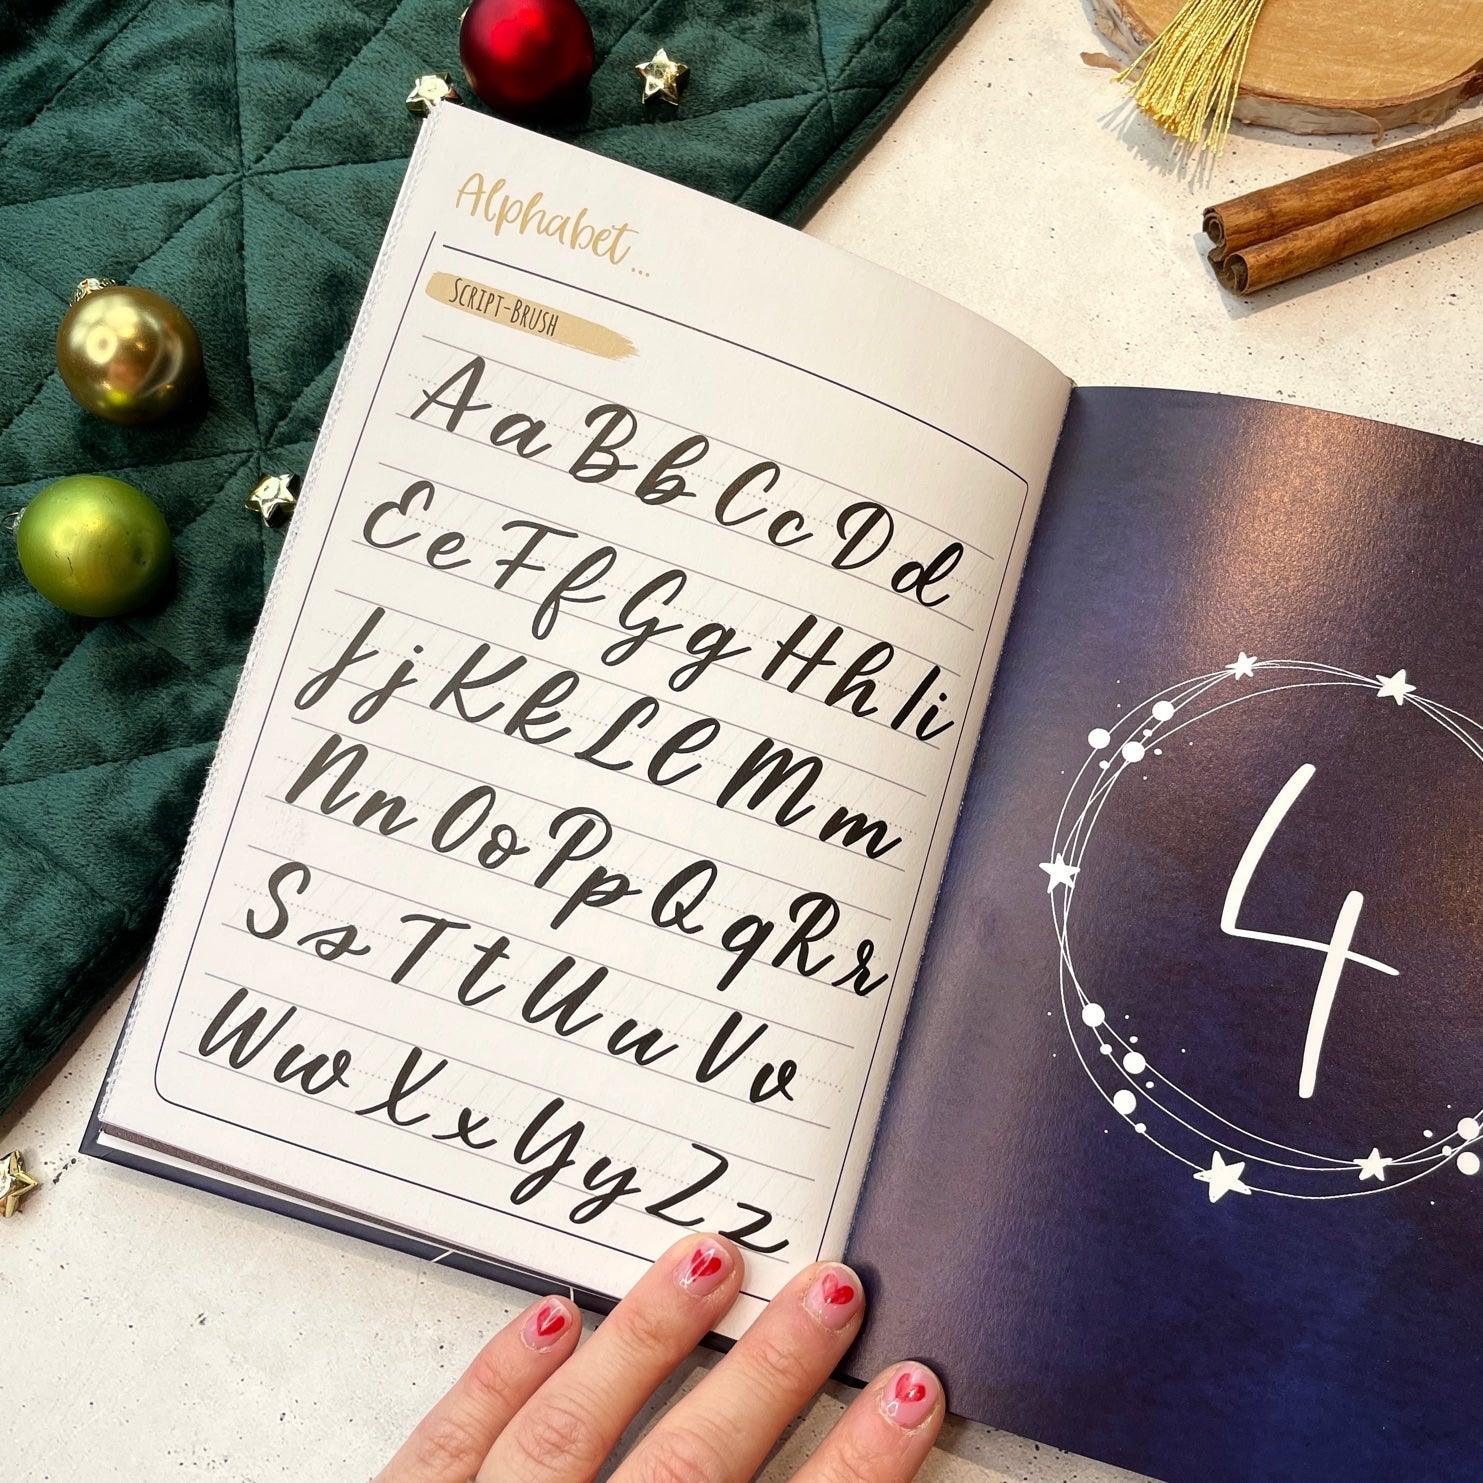 Alphabet...
SCRIPT-BRUSH
A a B b C c D d
E e F f G g H h I i
J j K k L l M m
N n O o P p Q q R r
S s T t U u V v
W w X x Y y Z z
4